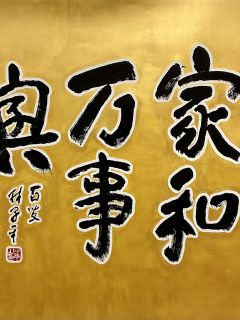 家和
万事
興
百岁